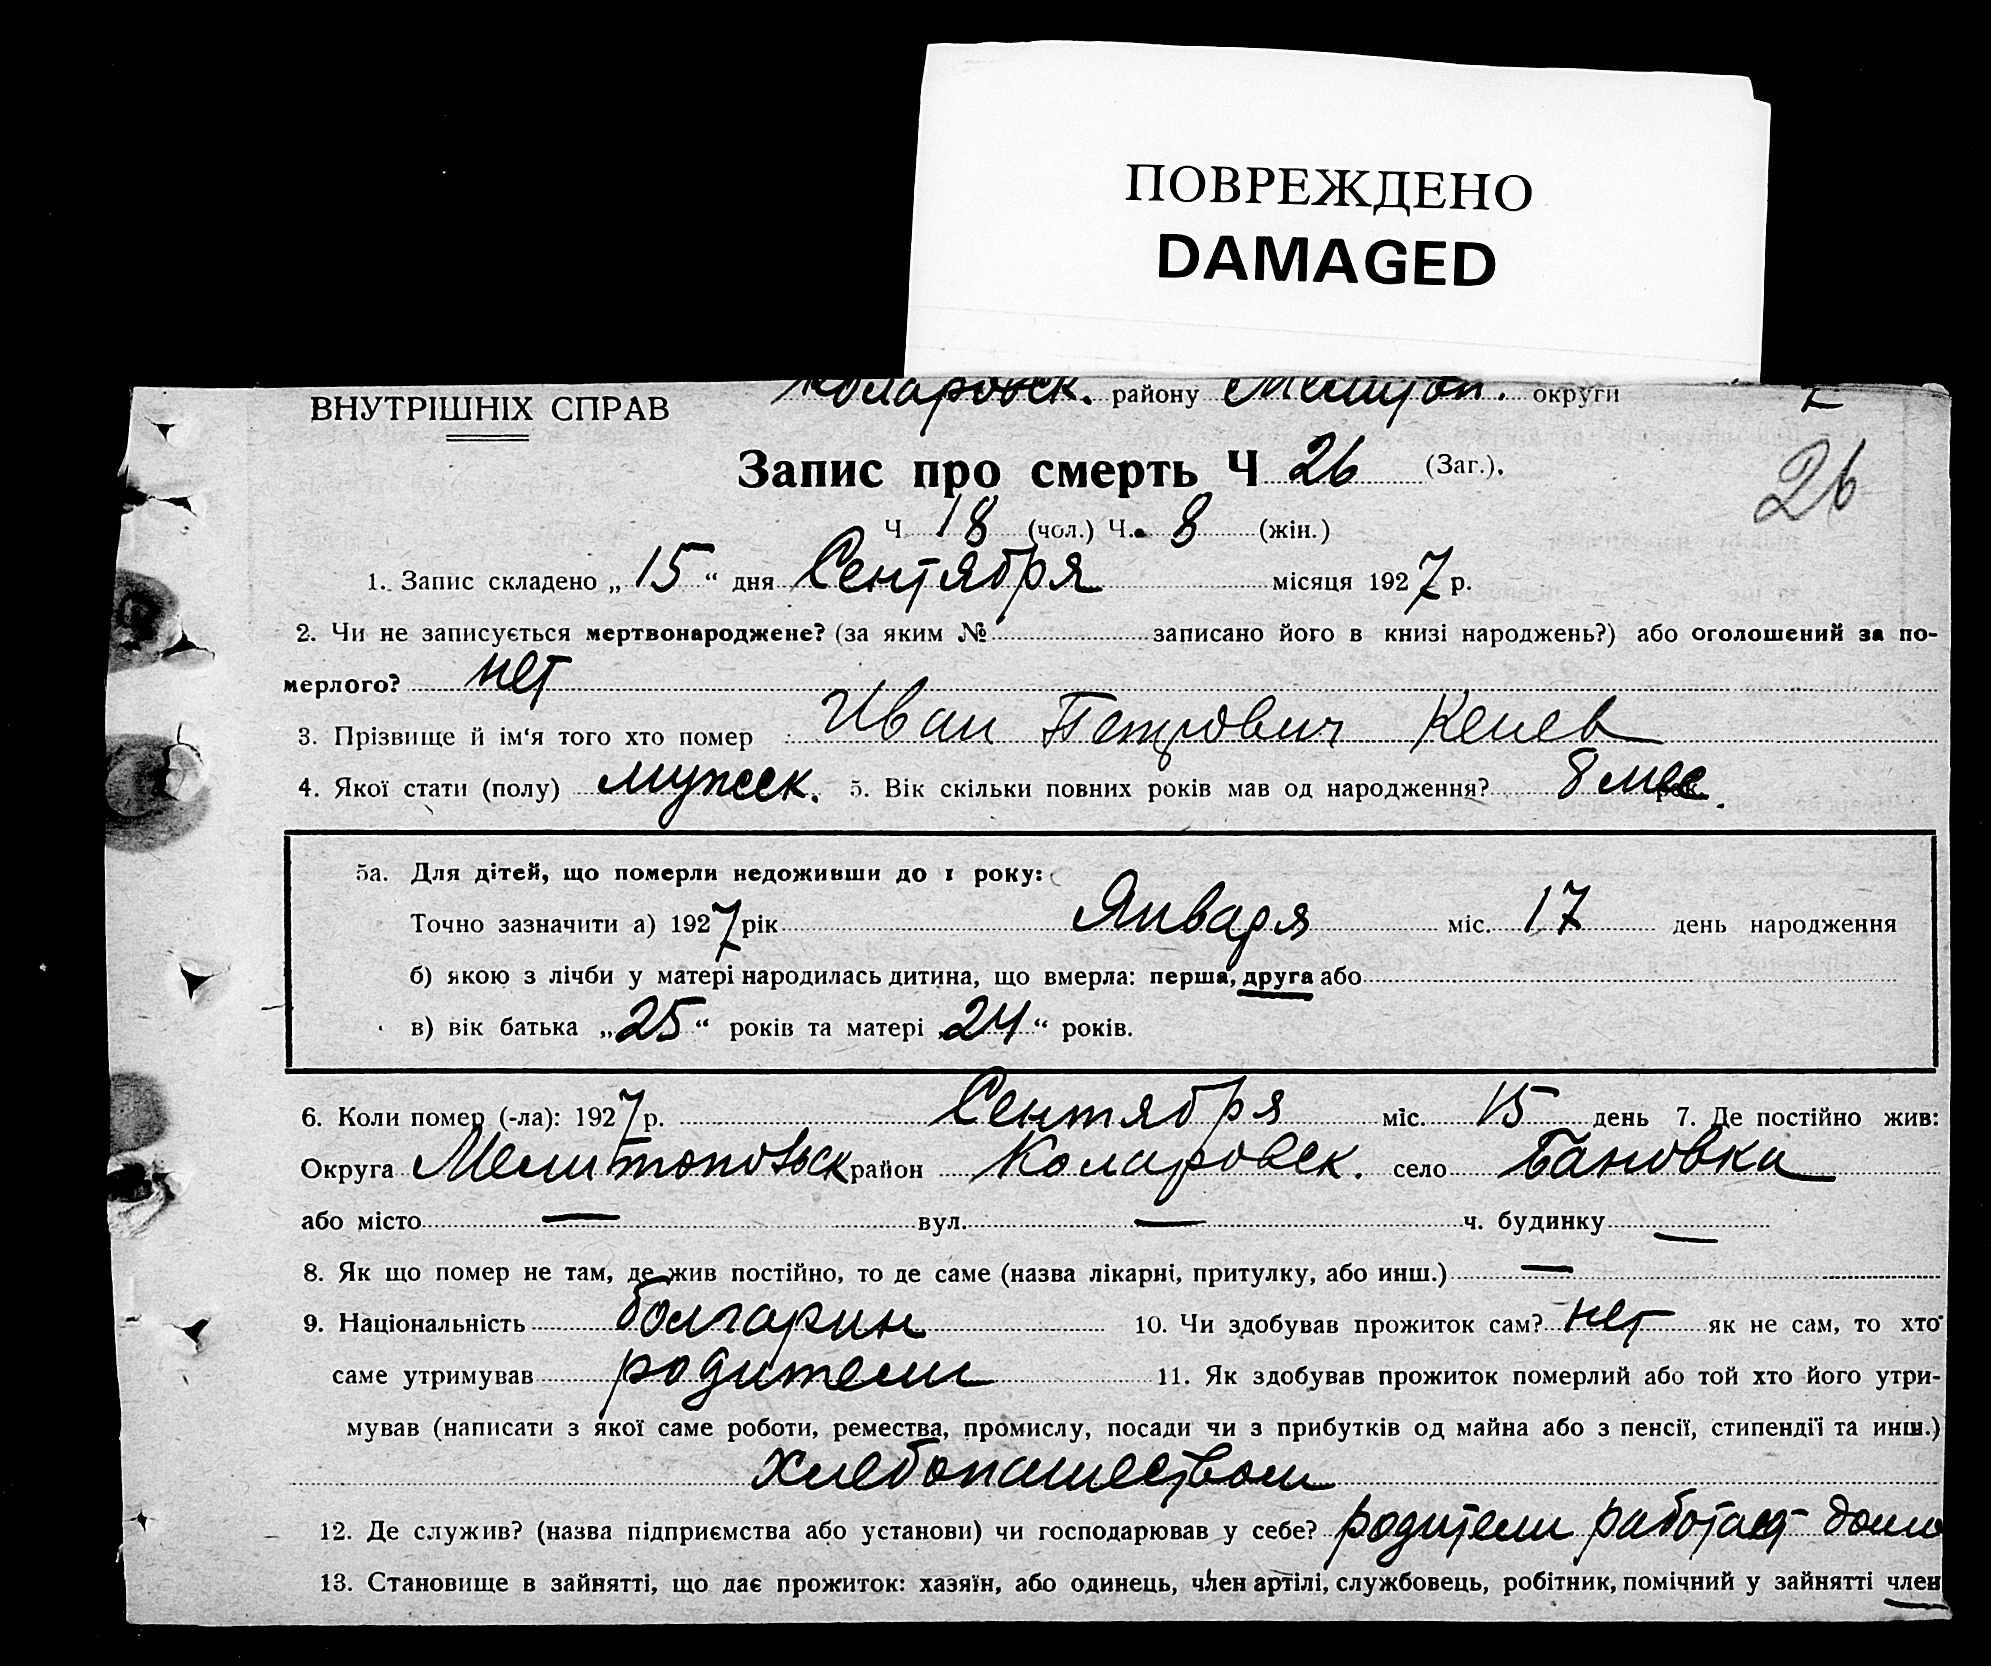 ПОВРЕЖДЕНО
DAMAGED
ВНУТРІШНІХ СПРАВ
Коларовск. району Мелитоп. округи
Запис про смерть Ч 26 (Заг.).
26
Ч. 18 (чол.) Ч. 8 (жін.)
1. Запис складено „15“ дня Сентября місяця 1927 р.
2. Чи не записується мертвонароджене? (за яким № записано його в книзі народжень?) або оголошений за по-
мерлого? нет
3. Прізвище й ім'я того хто помер Иван Петрович Кенев
4. Якої стати (полу) мужск. 5. Вік скільки повних років мав од народження? 8 мес.
5а. Для дітей, що померли недоживши до 1 року:
Точно зазначити а) 1927 рік Января міс. 17 день народження
б) якою з лічби у матері народилась дитина, що вмерла: перша, друга або
в) вік батька „25“ років та матері „24“ років.
6. Коли помер (-ла): 1927 р. Сентября міс. 15 день 7. Де постійно жив:
Округа Мелитопольск район Коларовск. село Бановка
або місто — вул. — ч. будинку —
8. Як що помер не там, де жив постійно, то де саме (назва лікарні, притулку, або инш.) —
9. Національність болгарин 10. Чи здобував прожиток сам? нет як не сам, то хто
саме утримував родители 11. Як здобував прожиток померлий або той хто його утри-
мував (написати з якої саме роботи, ремества, промислу, посади чи з прибутків од майна або з пенсії, стипендії та инш.)
хлебопашеством
12. Де служив? (назва підприємства або установи) чи господарював у себе? родители работают дома
13. Становище в зайнятті, що дає прожиток: хазяїн, або одинець, член артілі, службовець, робітник, помічний у зайнятті член